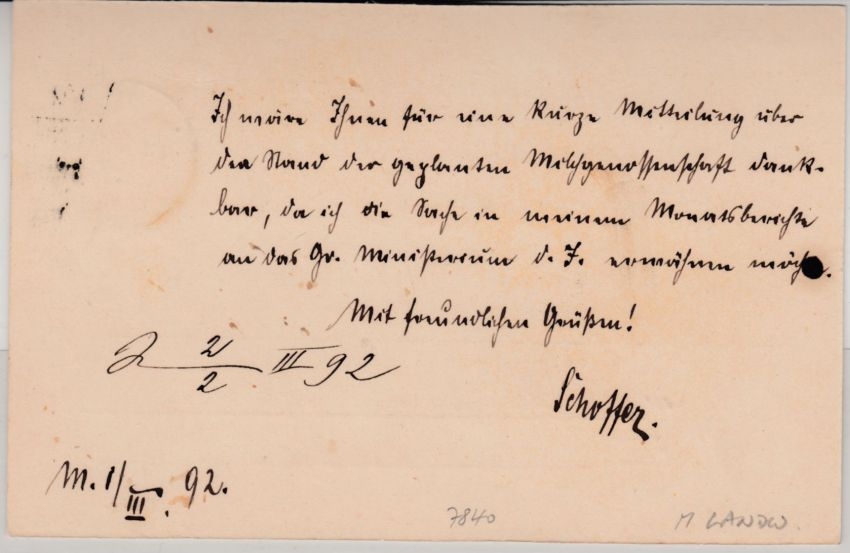 Ich wäre Ihnen für eine kurze Mitteilung über
den Stand der geplanten Milchgenossenschaft dank-
bar, da ich die Sache in meinem Monatsberichte
an das Gr. Ministerium d. I. erwähnen möchte.
Mit freundlichen Grüßen!
2 2/2 III 92
Schoffer.
M. 1/III. 92.
7840
M LANDW.